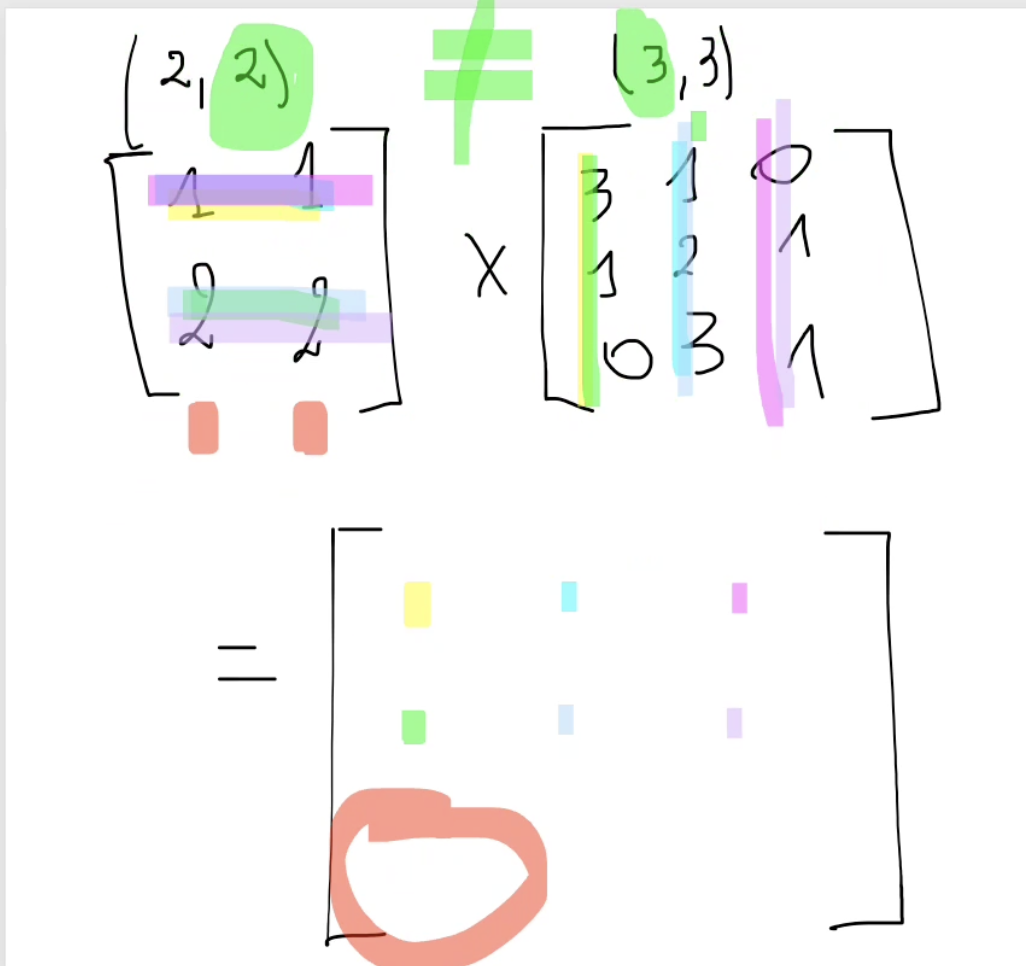 (2, 2) ≠ (3, 3)
[1 1 2 2] X [3 1 0 1 2 1 0 3 1]
= [ ]